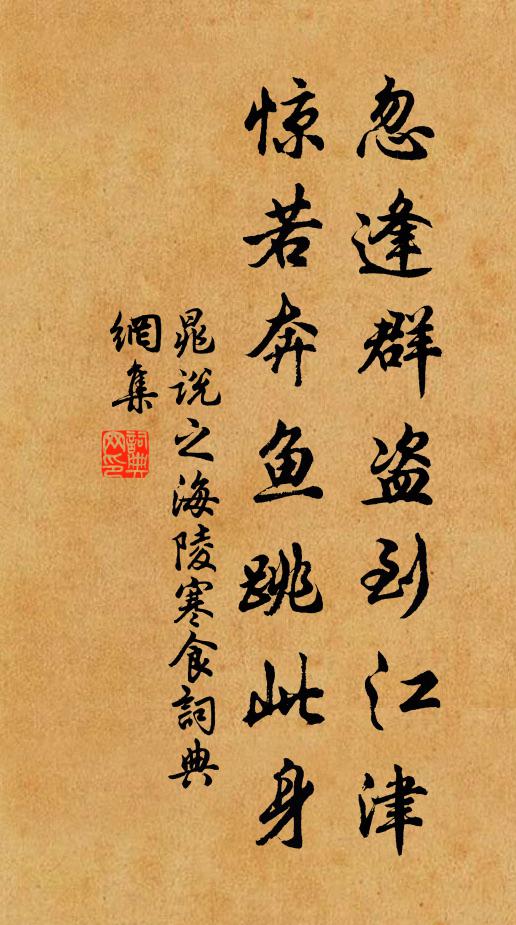 忽逢群盗到江津
惊若奔鱼跳此身
晁说之海陵寒食詞典
網集
詞典
网印